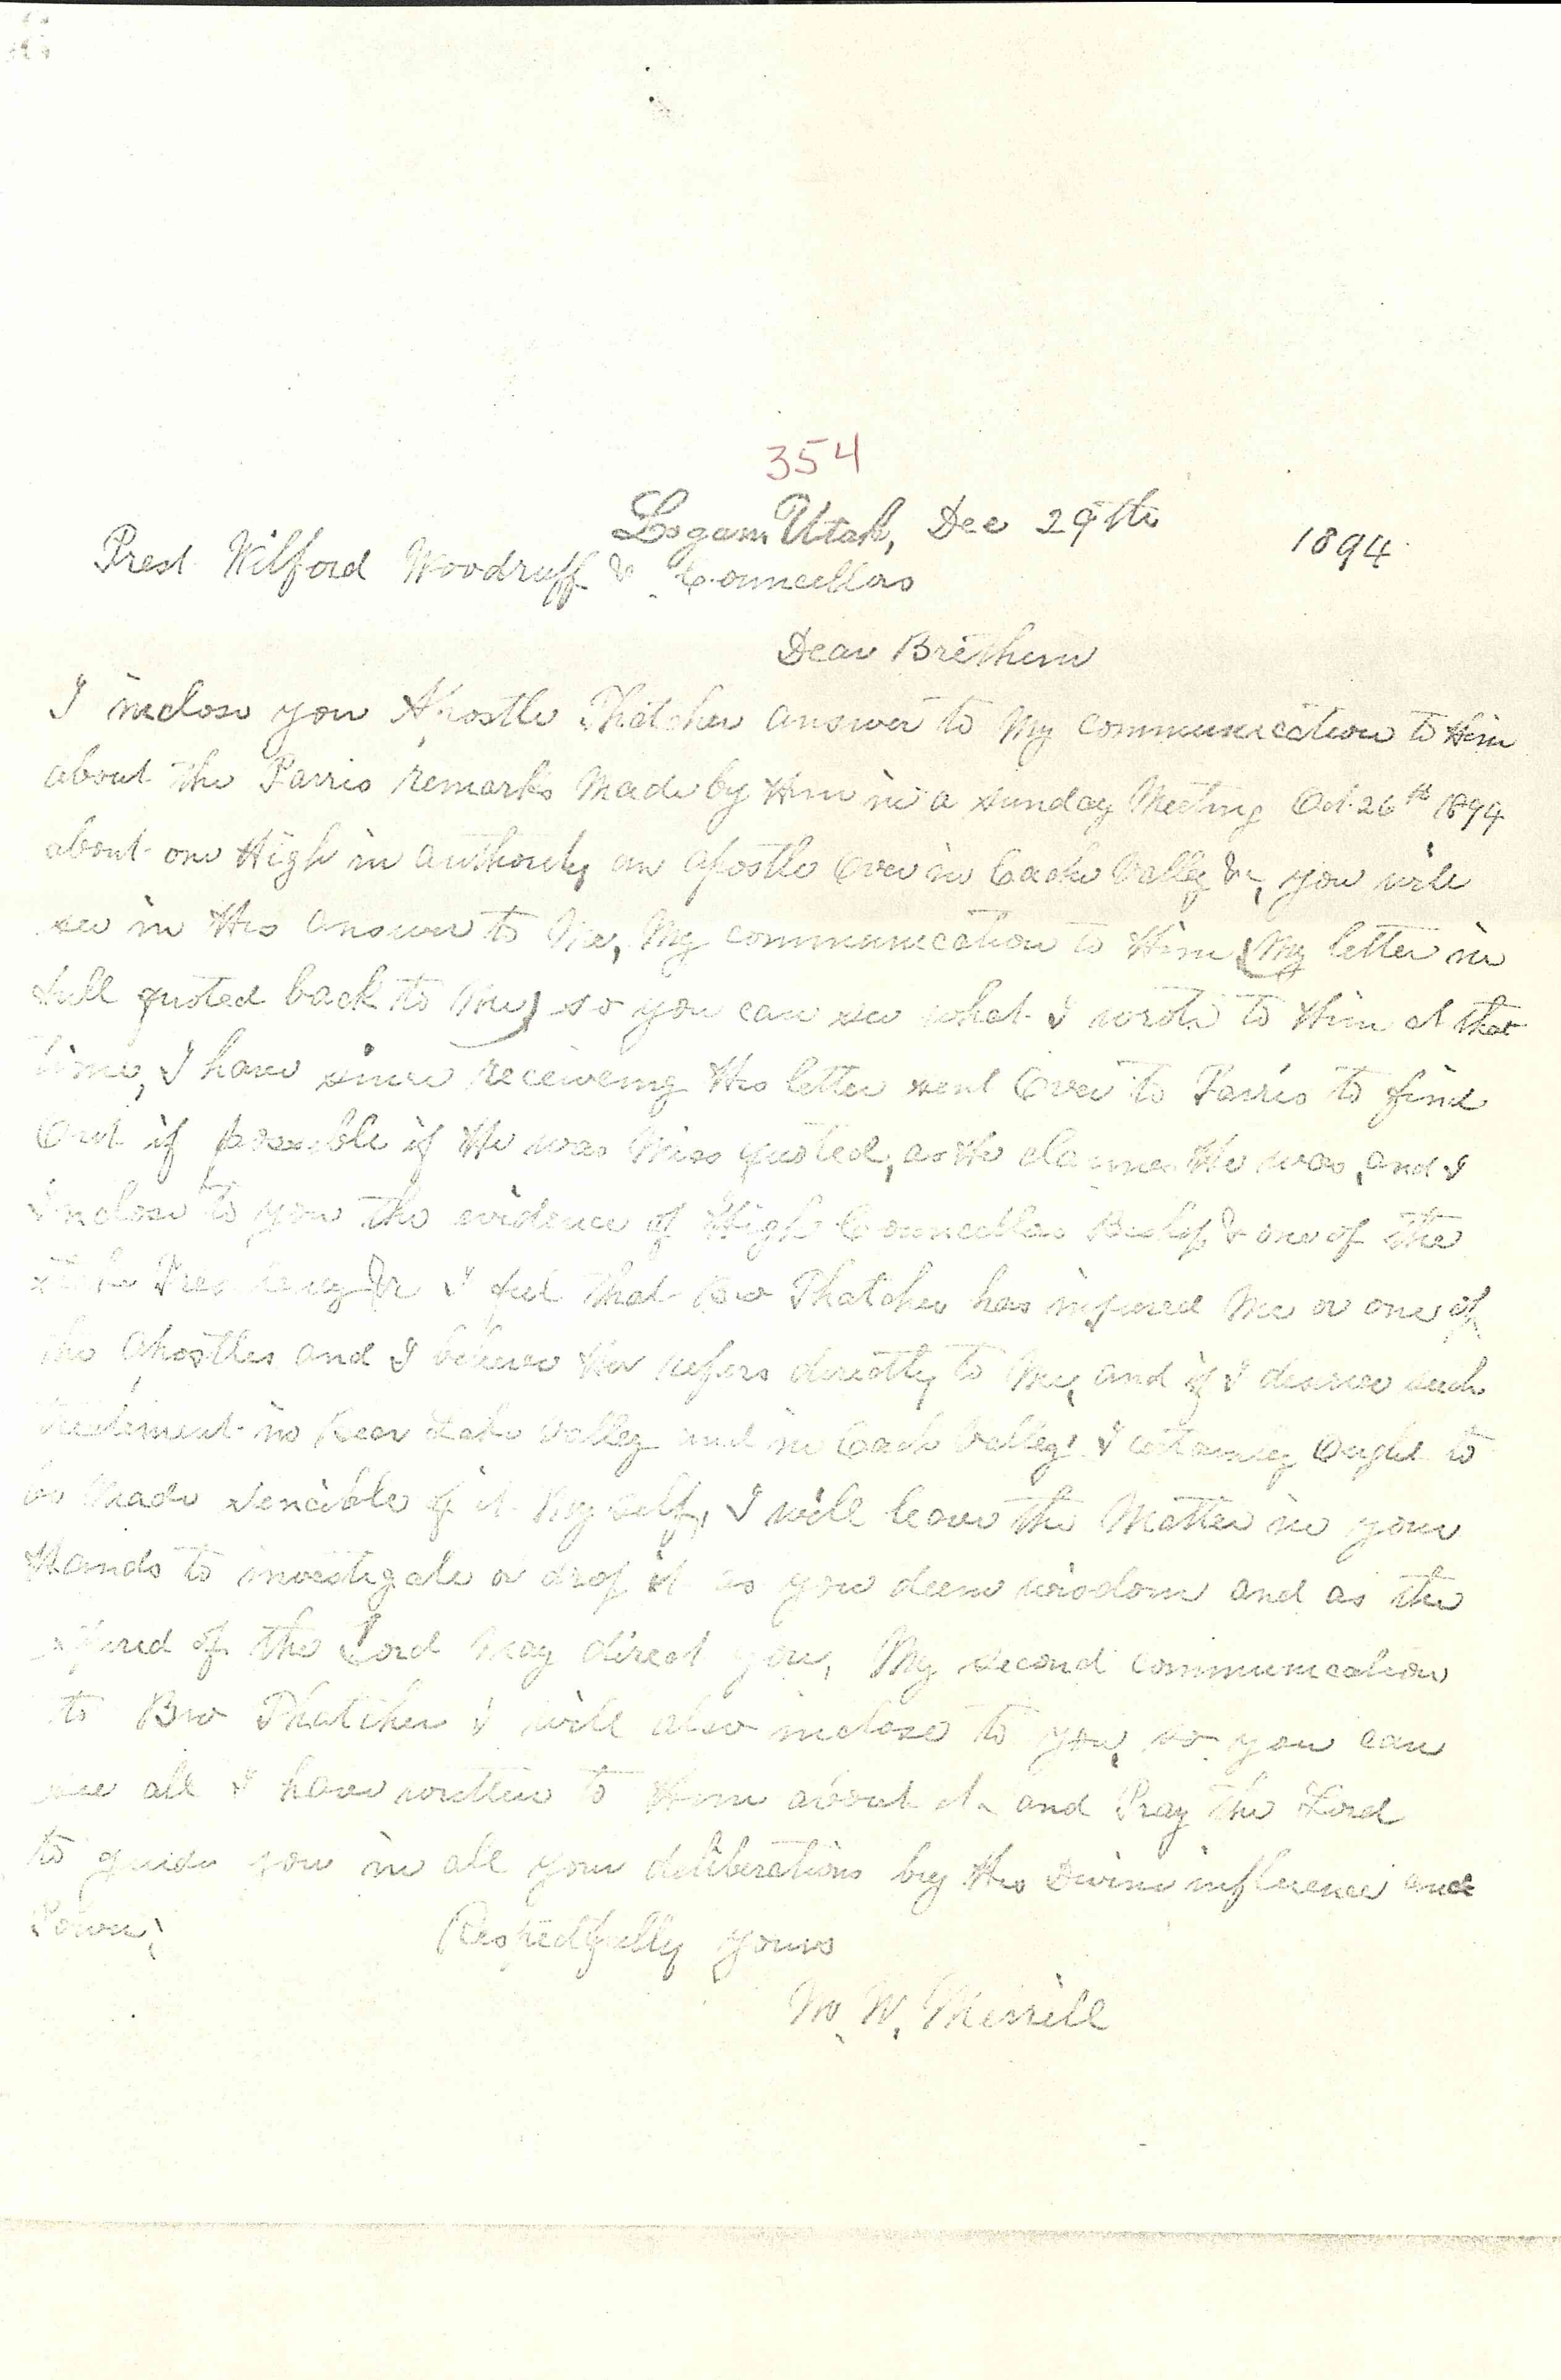 354
Logan, Utah, Dec 29th 1894
Prest Wilford Woodruff & Councellors
Dear Brethern
I inclose you Apostle Thatcher answer to My communication to Him
about the Parris remarks Made by Him in a sunday Meeting Oct. 26th 1894
about one High in authority an apostle Over in Cache Valley &c, you will
see in His answer to Me, My communication to Him, (My letter in
full quoted back to Me) so you can see what I wrote to Him at that
time, I have since receiveing His letter sent Over to Parris to find
Out if possible if He was Miss quoted, as He claimes He was, and I
Inclose to you the evidence of High Councellor Bishop & one of the
stake Presidency &c I feel that Bro Thatcher has injured Me or one of
the Apostles and I believe He refers directly to Me, and if I deserve such
treatement in Bear Lake Valley and in Cache Valley I certainly Ought to
be Made sencible of it My self, I will leave the Matter in your
Hands to investigate or drop it as you deem wisdom and as the
spirid of the Lord May direct you, My second communication
to Bro Thatcher I will also inclose to you, so you can
see all I have written to Him about it and Pray the Lord
to guide you in all your deliberations by His Divine influence and
Power,
Respectfully yours
M. W. Merrill